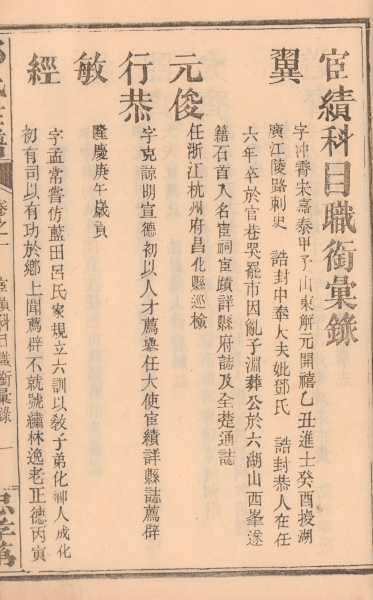 宦績科目職銜彙錄
翼
字冲霄宋嘉泰甲子山東解元開禧乙丑進士癸酉授湖
廣江陵路刺史 誥封中奉大夫妣鄧氏 誥封恭人在任
六年卒於官巷哭罷市因亂子淵葬公於六湖山西峯遂
籍石首入名宦祠宦蹟詳縣府誌及全楚通誌
元俊
任浙江杭州府昌化縣巡檢
行恭
字克諒明宣德初以人才薦舉任大使宦績詳縣誌薦辟
敏
隆慶庚午歲貢
經
字孟常嘗仿藍田呂氏家規立六訓以敎子弟化鄉人成化
初有司以有功於鄉上聞薦辟不就號繡林逸老正德丙寅
卷之一 宦績科目職銜彙錄 一